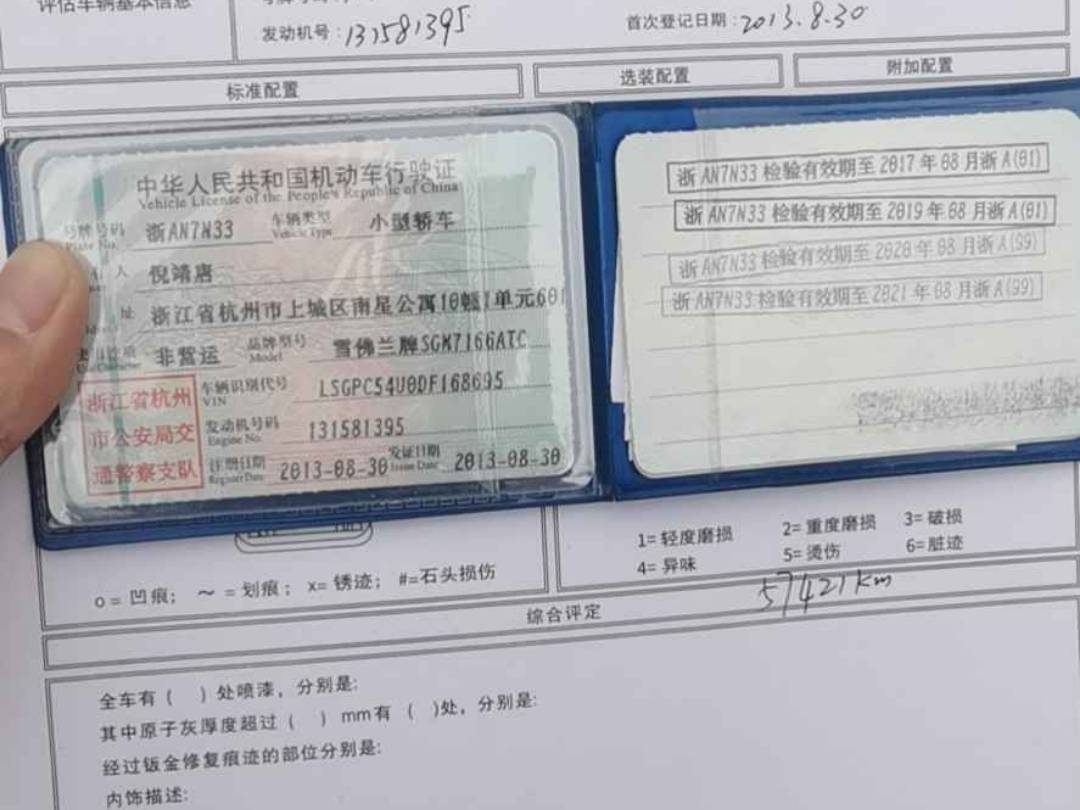 评估车辆基本信息
发动机号:131581395
首次登记日期:2013.8.30
标准配置
选装配置
附加配置
中华人民共和国机动车行驶证
Vehicle License of the People's Republic of China
号牌号码 浙AN7N33 车辆类型 小型轿车
Plate No. Vehicle Type
人 倪靖唐
址 浙江省杭州市上城区南星公寓10幢1单元601
非营运 品牌型号 雪佛兰牌SGM7166ATC
Model
浙江省杭州
市公安局交
通警察支队
车辆识别代号 LSGPC54U0DF168695
VIN
发动机号码 131581395
Engine No.
注册日期 2013-08-30 发证日期 2013-08-30
Register Date Issue Date
浙AN7N33检验有效期至2017年08月浙A(01)
浙AN7N33检验有效期至2019年08月浙A(01)
浙AN7N33检验有效期至2020年08月浙A(99)
浙AN7N33检验有效期至2021年08月浙A(99)
o=凹痕; ~=划痕; x=锈迹; #=石头损伤
1=轻度磨损 2=重度磨损 3=破损
4=异味 5=烫伤 6=脏迹
57421km
综合评定
全车有( )处喷漆,分别是:
其中原子灰厚度超过( )mm有( )处,分别是:
经过钣金修复痕迹的部位分别是:
内饰描述: